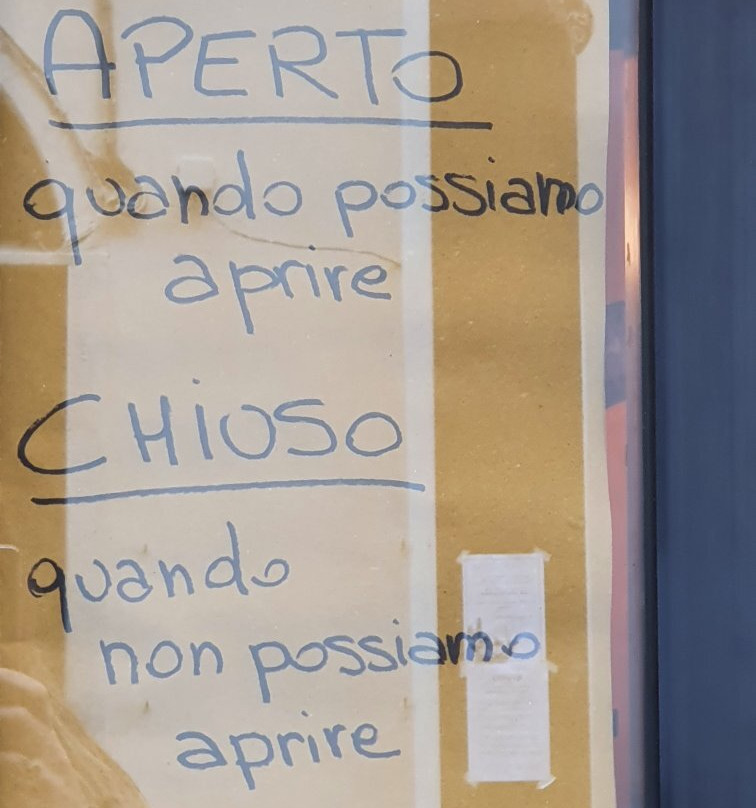 APERTO
quando possiamo
aprire
CHiUSO
quando
non possiamo
aprire